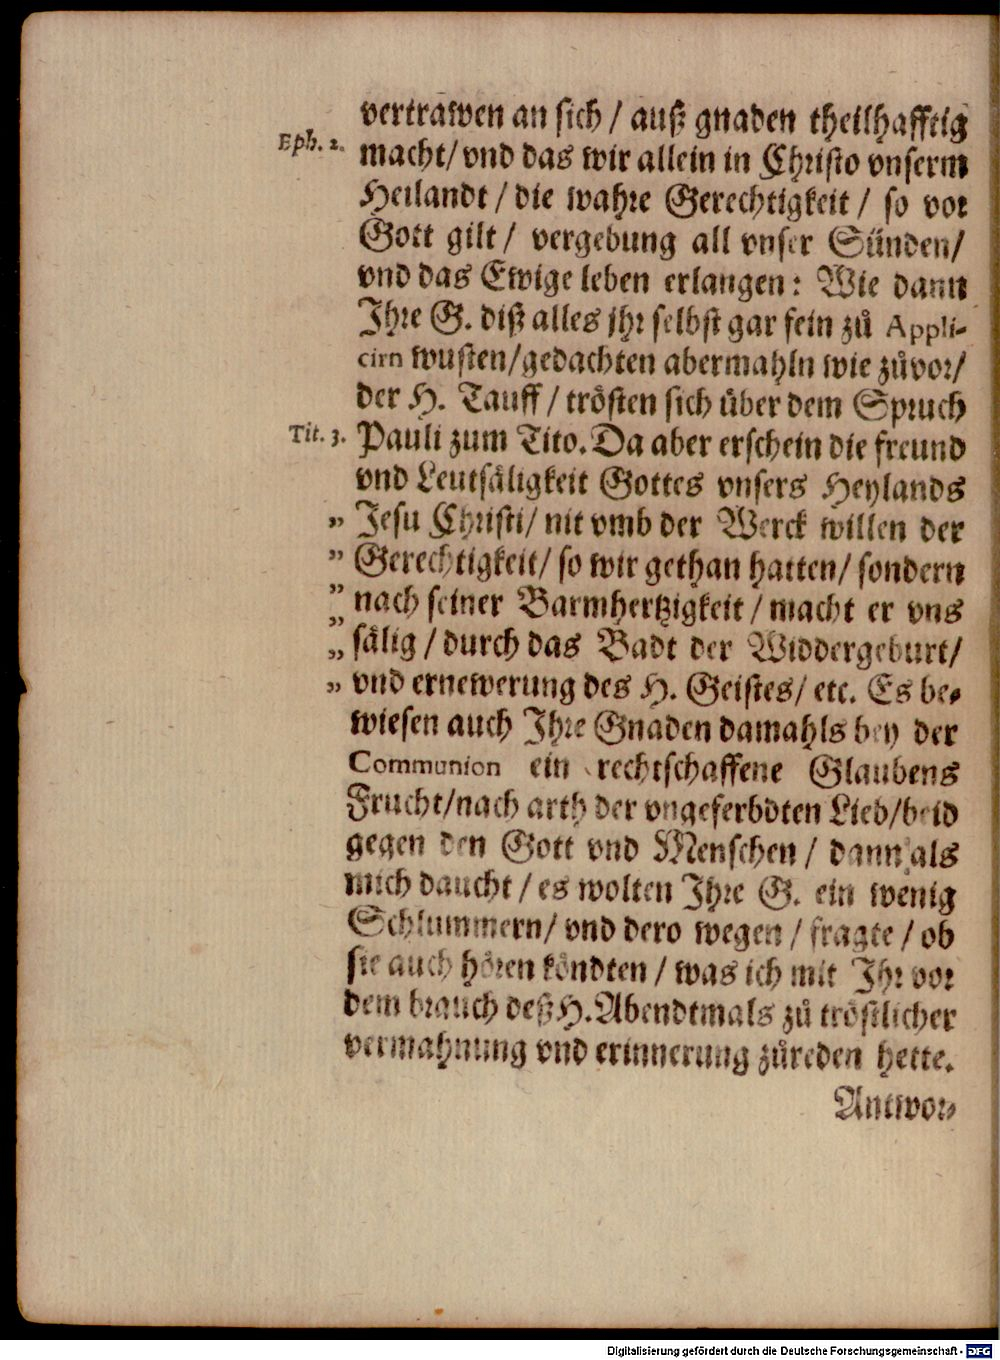 vertrawen an sich / auß gnaden theilhafftig
Eph. 2. macht/ vnd das wir allein in Christo vnserm
Heilandt / die wahre Gerechtigkeit / so vor
Gott gilt / vergebung all vnser Sünden/
vnd das Ewige leben erlangen: Wie dann
Ihre G. diß alles jhr selbst gar fein zů Appli-
cirn wusten/gedachten abermahln wie zůvor/
der H. Tauff / trösten sich über dem Spruch
Tit. 3. Pauli zum Tito. Da aber erschein die freund
vnd Leutsäligkeit Gottes vnsers Heylands
„ Jesu Christi/ nit vmb der Werck willen der
„ Gerechtigkeit/ so wir gethan hatten/ sondern
„ nach seiner Barmhertzigkeit / macht er vns
„ sälig / durch das Badt der Widdergeburt/
„ vnd ernewerung des H. Geistes/ etc. Es be-
wiesen auch Ihre Gnaden damahls bey der
Communion ein rechtschaffene Glaubens
Frucht/nach arth der vngeferbdten Lieb/beid
gegen den Gott vnd Menschen / dann als
mich daucht / es wolten Ihre G. ein wenig
Schlummern/ vnd dero wegen / fragte / ob
sie auch hören köndten / was ich mit Ihr vor
dem brauch deß H. Abendtmals zů tröstlicher
vermahnung vnd erinnerung zůreden hette.
Antwor-
Digitalisierung gefördert durch die Deutsche Forschungsgemeinschaft - DFG